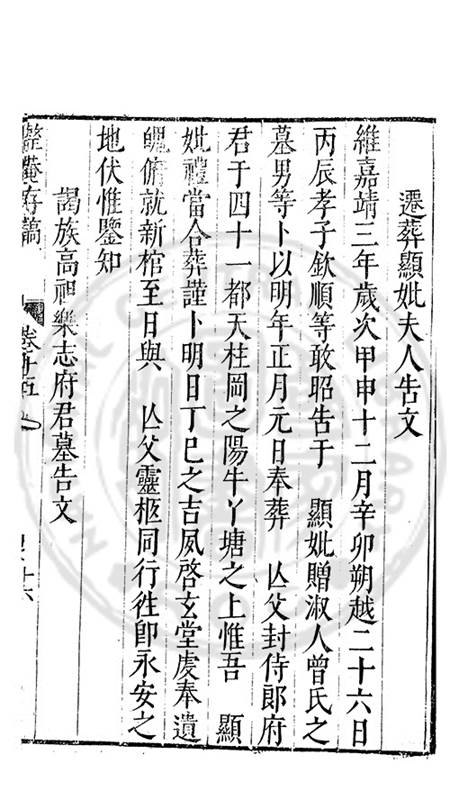 遷葬顯妣夫人告文
維嘉靖三年歲次甲申十二月辛卯朔越二十六日
丙辰孝子欽順等敢昭告于 顯妣贈淑人曾氏之
墓男等卜以明年正月元日奉葬 亾父封侍郎府
君于四十一都天柱岡之陽牛丫塘之上惟吾 顯
妣禮當合葬謹卜明日丁巳之吉夙啓玄堂虔奉遺
魄俯就新棺至日與 亾父靈柩同行徃卽永安之
地伏惟鑒知
謁族高祖樂志府君墓告文
整菴存藁
卷十五